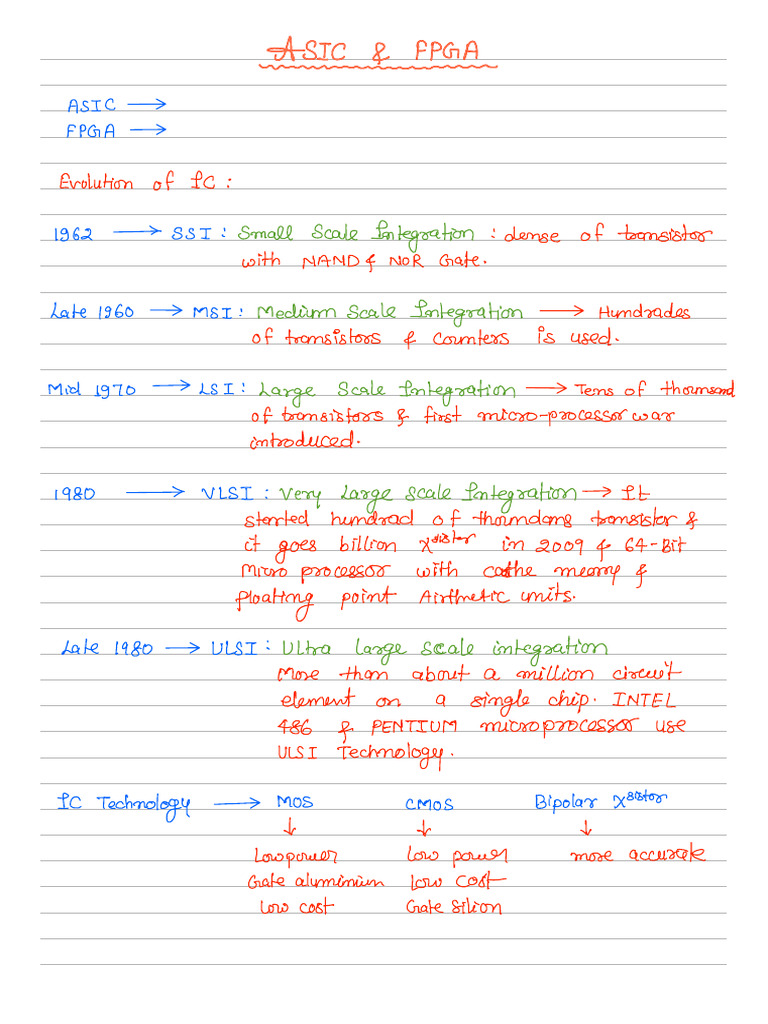 ASIC & FPGA
ASIC →
FPGA →
Evolution of IC :
1962 → SSI : Small Scale Integration : dense of transistor
with NAND & NOR Gate.
Late 1960 → MSI : Medium Scale Integration → Hundrades
of transistors & counters is used.
Mid 1970 → LSI : Large Scale Integration → Tens of thousand
of transistors & first micro-processor was
introduced.
1980 → VLSI : Very Large Scale Integration → It
started hundrad of thoundans transistor &
it goes billion Xsistor in 2009 & 64-Bit
Micro processor with cathe memry &
floating point Airthetic units.
Late 1980 → ULSI : Ultra large scale integration
More than about a million circuit
element on a single chip. INTEL
486 & PENTIUM microprocessor use
ULSI Technology.
IC Technology → MOS CMOS Bipolar Xsistor
↓ ↓ ↓
Low power low power more accurate
Gate aluminium low cost
low cost Gate Silion